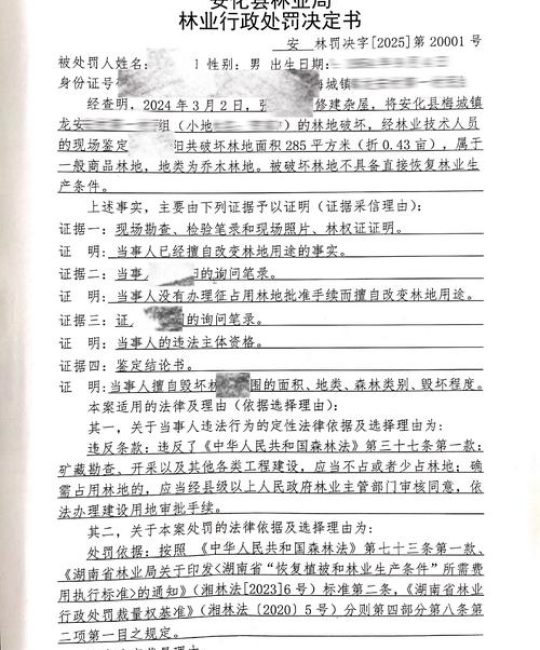 安化县林业局
林业行政处罚决定书
安 林罚决字[2025]第 20001 号
被处罚人姓名： 性别：男 出生日期：
身份证号 梅城镇
经查明，2024 年 3 月 2 日， 修建杂屋，将安化县梅城镇
龙安 组（小地 ）的林地破坏，经林业技术人员
的现场鉴定 共破坏林地面积 285 平方米（折 0.43 亩），属于
一般商品林地，地类为乔木林地。被破坏林地不具备直接恢复林业生
产条件。
上述事实，主要由下列证据予以证明（证据采信理由）：
证据一：现场勘查、检验笔录和现场照片、林权证证明。
证 明：当事人已经擅自改变林地用途的事实。
证据二：当事 的询问笔录。
证 明：当事人没有办理征占用林地批准手续而擅自改变林地用途。
证据三：证 的询问笔录。
证 明：当事人的违法主体资格。
证据四：鉴定结论书。
证 明：当事人擅自毁坏林 围的面积、地类、森林类别、毁坏程度。
本案适用的法律及理由（依据选择理由）：
其一，关于当事人违法行为的定性法律依据及选择理由为：
违反条款：违反了《中华人民共和国森林法》第三十七条第一款：
矿藏勘查、开采以及其他各类工程建设，应当不占或者少占林地；确
需占用林地的，应当经县级以上人民政府林业主管部门审核同意，依
法办理建设用地审批手续。
其二，关于本案处罚的法律依据及选择理由为：
处罚依据：按照 《中华人民共和国森林法》第七十三条第一款、
《湖南省林业局关于印发<湖南省“恢复植被和林业生产条件”所需费
用执行标准>的通知》（湘林法[2023]6 号）标准第二条，《湖南省林业
行政处罚裁量权基准》（湘林法〔2020〕5 号）分则第四部分第八条第
二项第一目之规定。